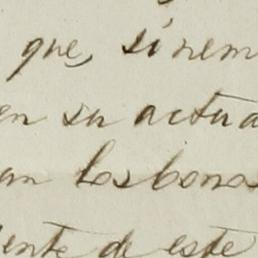 que, si nem
en su actua
an los bonos
ente de este